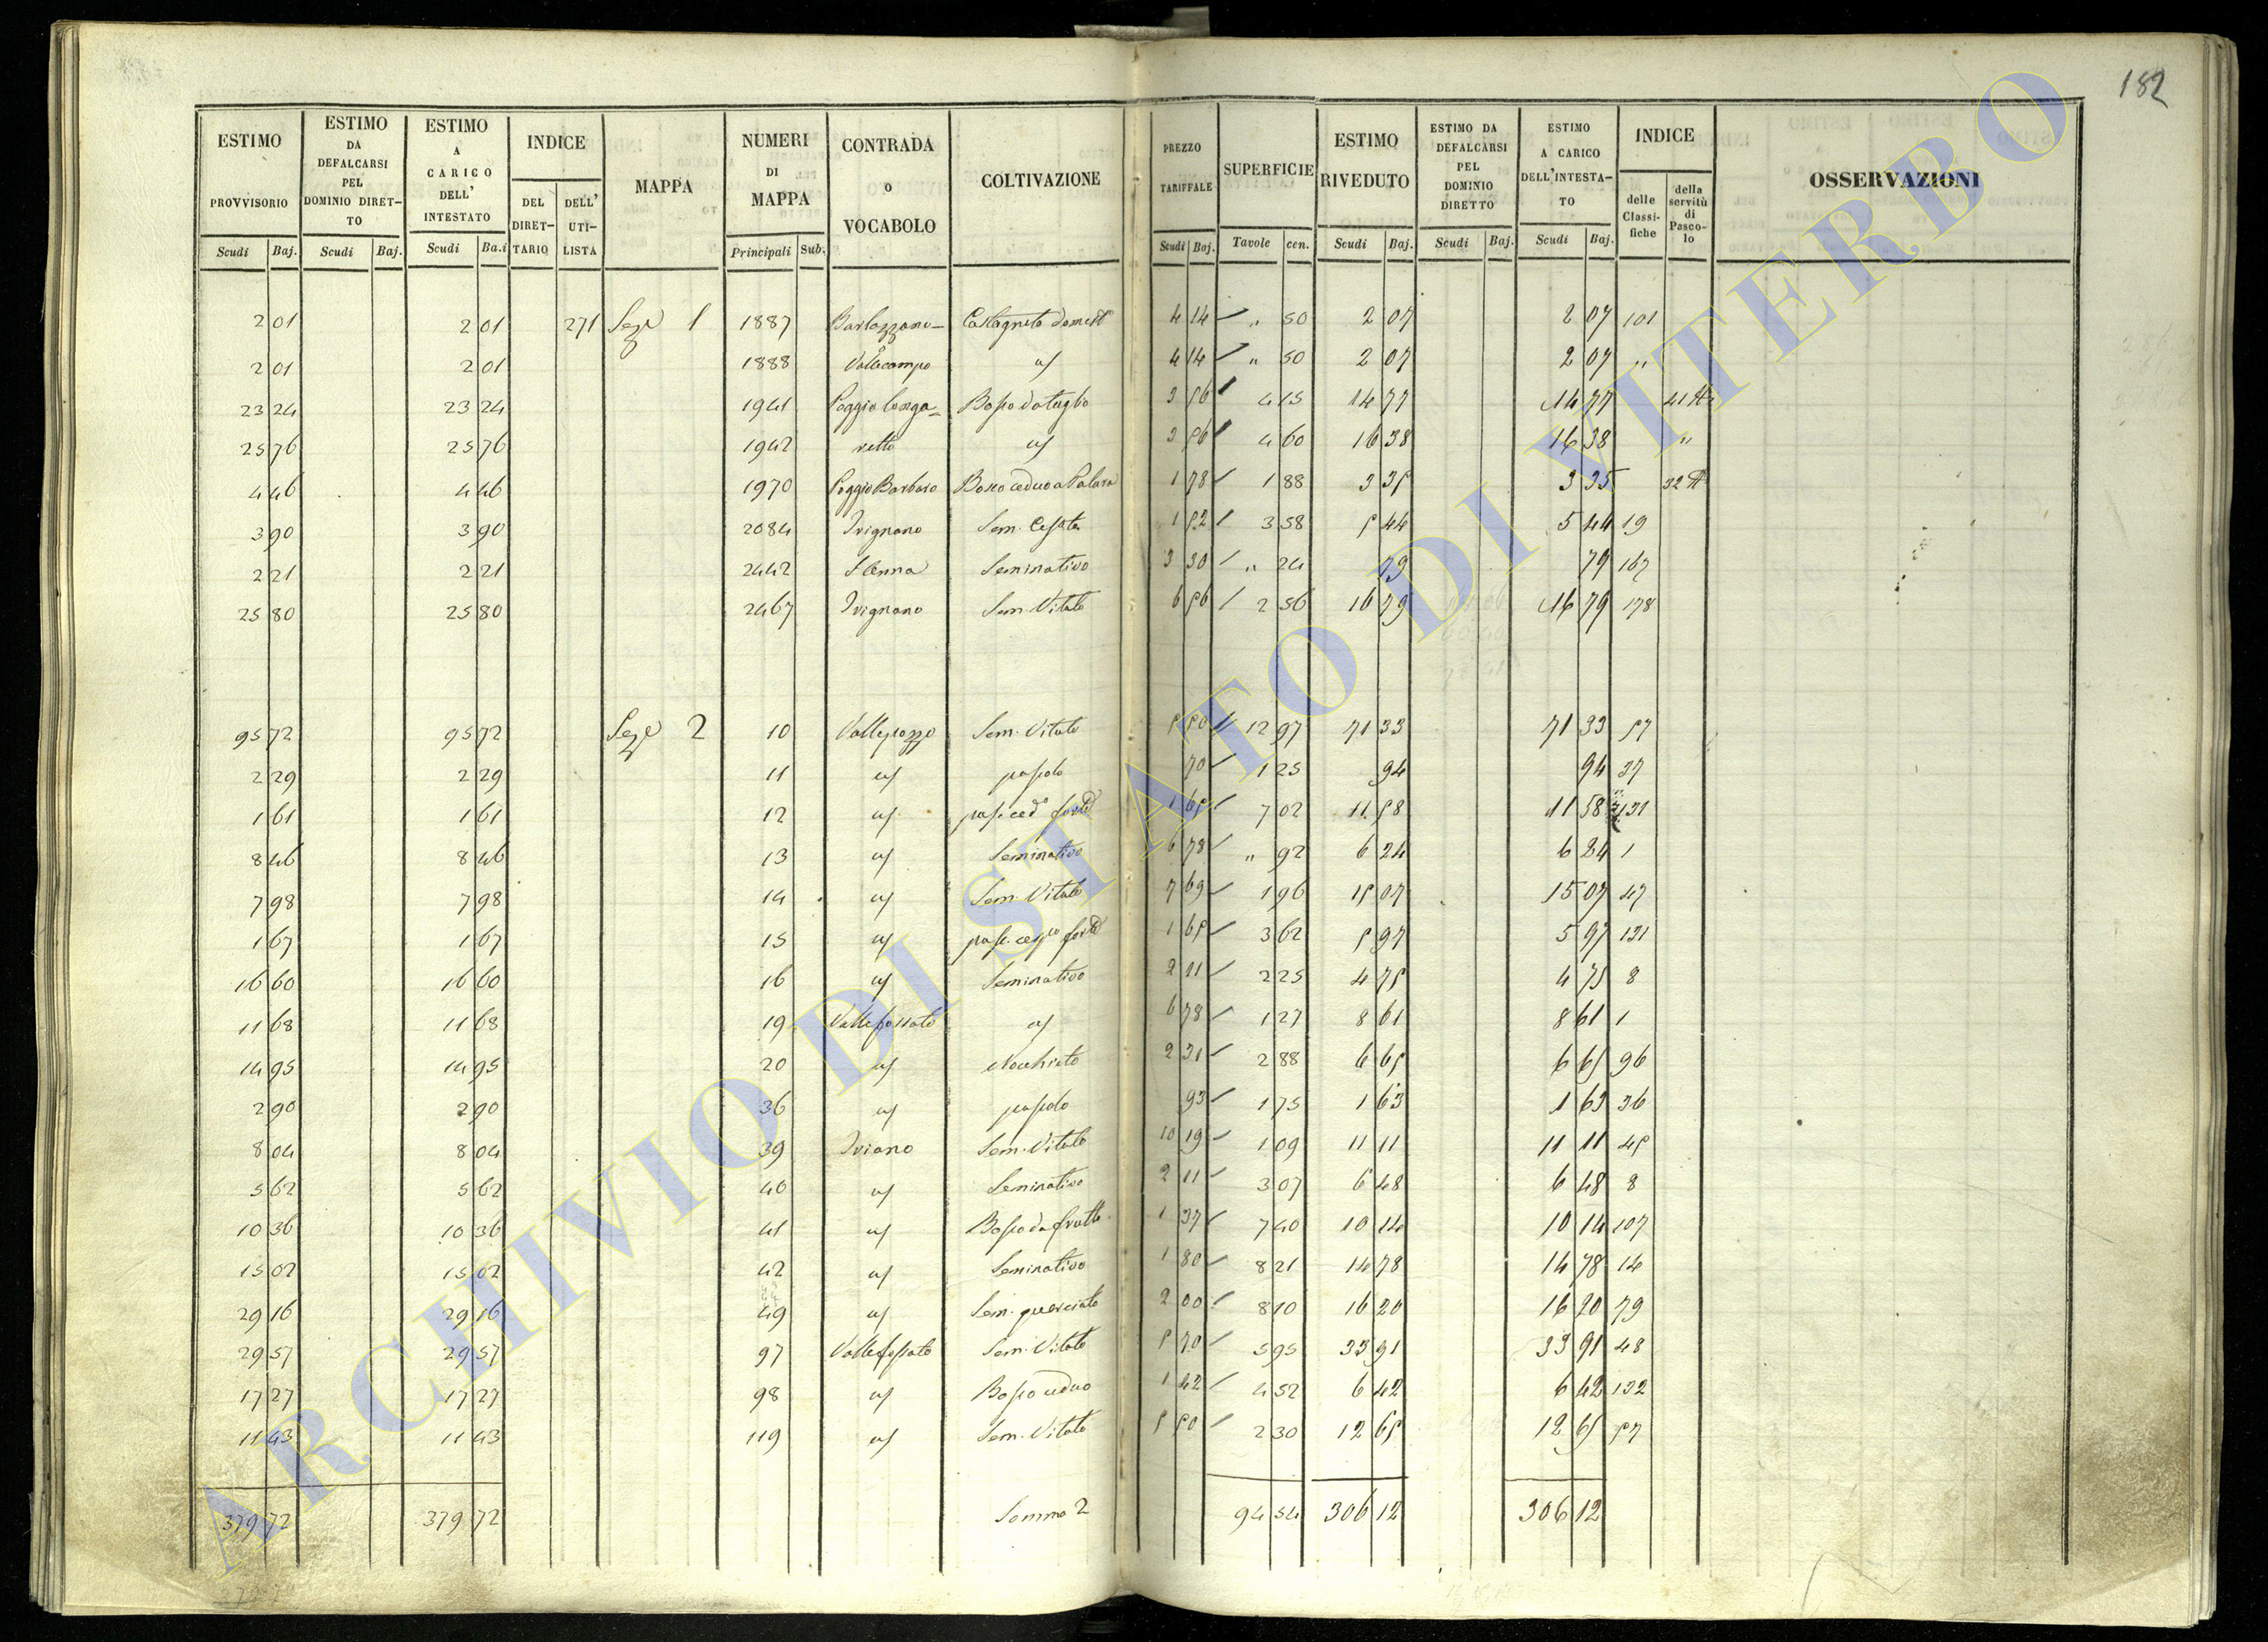 182
ESTIMO PROVVISORIO Scudi Baj. | ESTIMO DA DEFALCARSI PEL DOMINIO DIRETTO Scudi Baj. | ESTIMO A CARICO DELL' INTESTATO Scudi Ba.i | INDICE DEL DIRETTARIO DELL' UTILISTA | MAPPA | NUMERI DI MAPPA Principali Sub. | CONTRADA o VOCABOLO | COLTIVAZIONE | PREZZO TARIFFALE Scudi Baj. | SUPERFICIE Tavole cen. | ESTIMO RIVEDUTO Scudi Baj. | ESTIMO DA DEFALCARSI PEL DOMINIO DIRETTO Scudi Baj. | ESTIMO A CARICO DELL'INTESTATO Scudi Baj. | INDICE delle Classifiche della servitù di Pascolo | OSSERVAZIONI
2 01 2 01 271 Seze 1 1887 Castagneto domest° 4 14 " 50 2 07 2 07 101
2 01 2 01 1888 Vallecampo " 4 14 " 50 2 07 2 07 "
23 24 23 24 1941 Poggio longa- Bosco da taglio 3 56 4 15 14 77 14 77
25 76 25 76 1942 retto " 3 56 4 60 16 38 16 38 "
4 46 4 46 1970 Poggio Barbaro Bosco ceduo a Palara 1 78 1 88 3 35 3 35
3 90 3 90 2084 Ivignano Sem. 1 52 3 58 5 44 5 44 19
2 21 2 21 2442 S Anna Seminativo 3 30 " 24 79 79 167
25 80 25 80 2467 Ivignano Sem. Vitato 6 56 2 56 16 79 16 79 178
95 72 95 72 Seze 2 10 Vallepozzo Sem. Vitato 5 50 12 97 71 33 71 33 57
2 29 2 29 11 " pascolo 70 1 25 94 94 37
1 61 1 61 12 " 1 65 7 02 11 58 11 58 131
8 46 8 46 13 " Seminativo 6 78 " 92 6 24 6 24 1
7 98 7 98 14 " Sem. Vitato 7 69 1 96 15 07 15 07 47
1 67 1 67 15 " 1 65 3 62 5 97 5 97 131
16 60 16 60 16 " Seminativo 2 11 2 25 4 75 4 75 8
11 68 11 68 19 Vallefossato " 6 78 1 27 8 61 8 61 1
14 95 14 95 20 " Nochieto 2 31 2 88 6 65 6 65 96
2 90 2 90 36 " pascolo 93 1 75 1 63 1 63 36
8 04 8 04 39 Iviano Sem. Vitato 10 19 1 09 11 11 11 11 45
5 62 5 62 40 " Seminativo 2 11 3 07 6 48 6 48 8
10 36 10 36 41 " Bosco da frutto 1 37 7 40 10 14 10 14 107
15 02 15 02 42 " Seminativo 1 80 8 21 14 78 14 78 14
29 16 29 16 49 " Sem. querciato 2 00 8 10 16 20 16 20 79
29 57 29 57 97 Vallefossato Sem. Vitato 5 70 5 95 33 91 33 91 48
17 27 17 27 98 " Bosco ceduo 1 42 4 52 6 42 6 42 132
11 43 11 43 119 " Sem. Vitato 5 50 2 30 12 65 12 65 57
379 72 379 72 Somma 2 94 54 306 12 306 12
ARCHIVIO DI STATO DI VITERBO